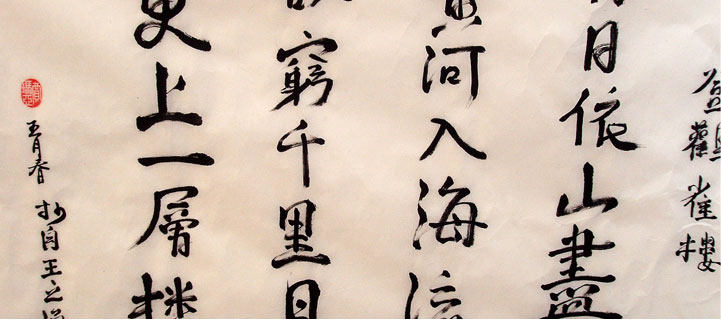 登鸛雀樓
白日依山盡
黃河入海流
欲窮千里目
更上一層樓
青春 抄自王之渙